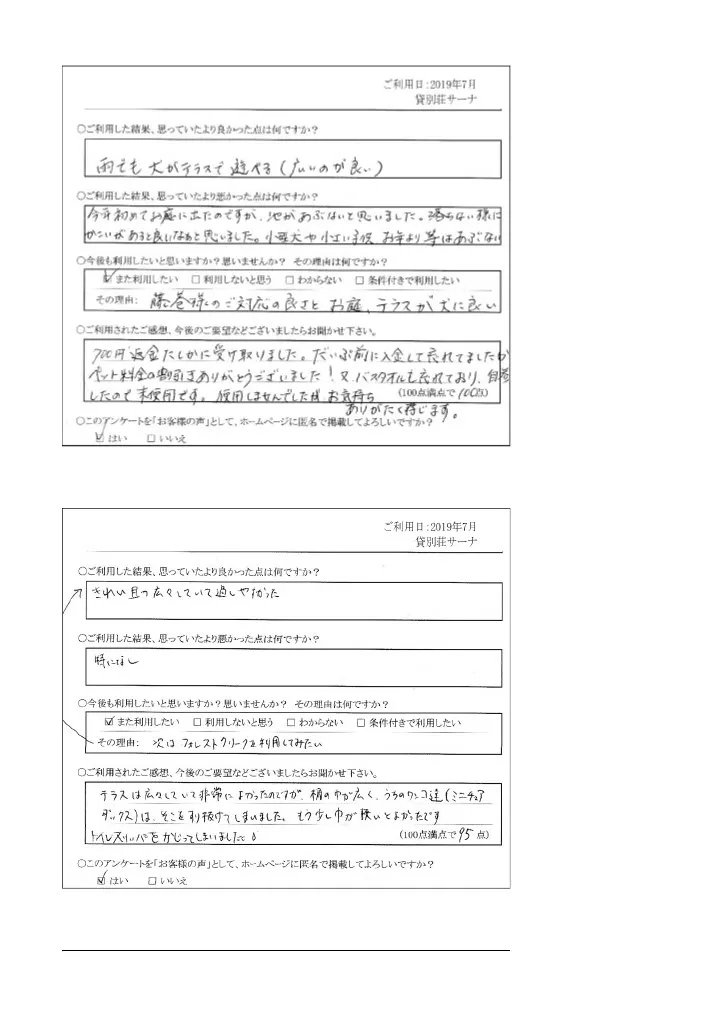 ご利用日:2019年7月
貸別荘サーナ
○ご利用した結果、思っていたより良かった点は何ですか？
雨でも犬がテラスで遊べる(広いのが良い)
○ご利用した結果、思っていたより悪かった点は何ですか？
今年初めてお庭に出たのですが、池があぶないと思いました。落ちない様に
かこいがあると良いなあと思いました。小型犬や小さい子供 お年より等はあぶない
○今後も利用したいと思いますか？思いませんか？ その理由は何ですか？
☑また利用したい □利用しないと思う □わからない □条件付きで利用したい
その理由: 藤巻様のご対応の良さと お庭、テラスが犬に良い
○ご利用されたご感想、今後のご要望などございましたらお聞かせ下さい。
700円返金たしかに受け取りました。だいぶ前に入金して忘れてましたが
ペット料金の割引きありがとうございました！又バスタオルも忘れており、
したので未使用です。使用しませんでしたが お気持ち (100点満点で100点)
ありがたく存じます。
○このアンケートを「お客様の声」として、ホームページに匿名で掲載してよろしいですか？
☑はい □いいえ
ご利用日:2019年7月
貸別荘サーナ
○ご利用した結果、思っていたより良かった点は何ですか？
きれい且つ広々していて過しやすかった
○ご利用した結果、思っていたより悪かった点は何ですか？
特になし
○今後も利用したいと思いますか？思いませんか？ その理由は何ですか？
☑また利用したい □利用しないと思う □わからない □条件付きで利用したい
その理由: 次は フォレストクリークを利用してみたい
○ご利用されたご感想、今後のご要望などございましたらお聞かせ下さい。
テラスは広々していて非常によかったのですが、柵の巾が広く、うちのワンコ達(ミニチュア
ダックス)は、そこをすり抜けてしまいました。もう少し巾が狭いとよかったです
トイレスリッパをかじってしまいました (100点満点で95点)
○このアンケートを「お客様の声」として、ホームページに匿名で掲載してよろしいですか？
☑はい □いいえ